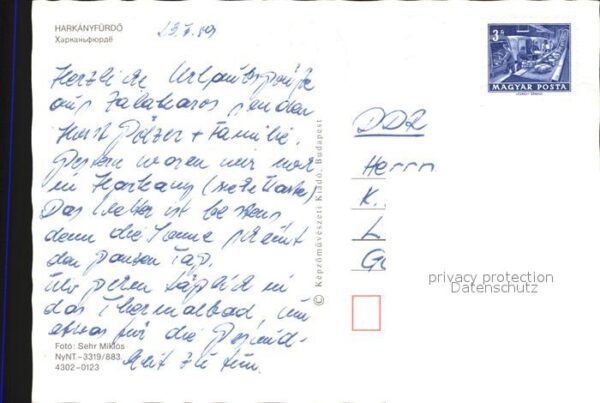 HARKÁNYFÜRDŐ
Харканьфюрдё
23.7.89
3 Ft
MAGYAR POSTA
Herzliche Urlaubsgrüße
aus Zalakaros senden
Horst Pölzer + Familie.
Gestern waren wir
in Harkany (siehe Karte)
Das Wetter ist bestens
denn die Sonne scheint
den ganzen Tag.
Wir gehen täglich in
das Thermalbad, um
etwas für die Gesund-
heit zu tun.
DDR
Herrn
K.
L
© Képzőművészeti Kiadó, Budapest
privacy protection
Datenschutz
Fotó: Sehr Miklós
NyNT.-3319/883.
4302-0123